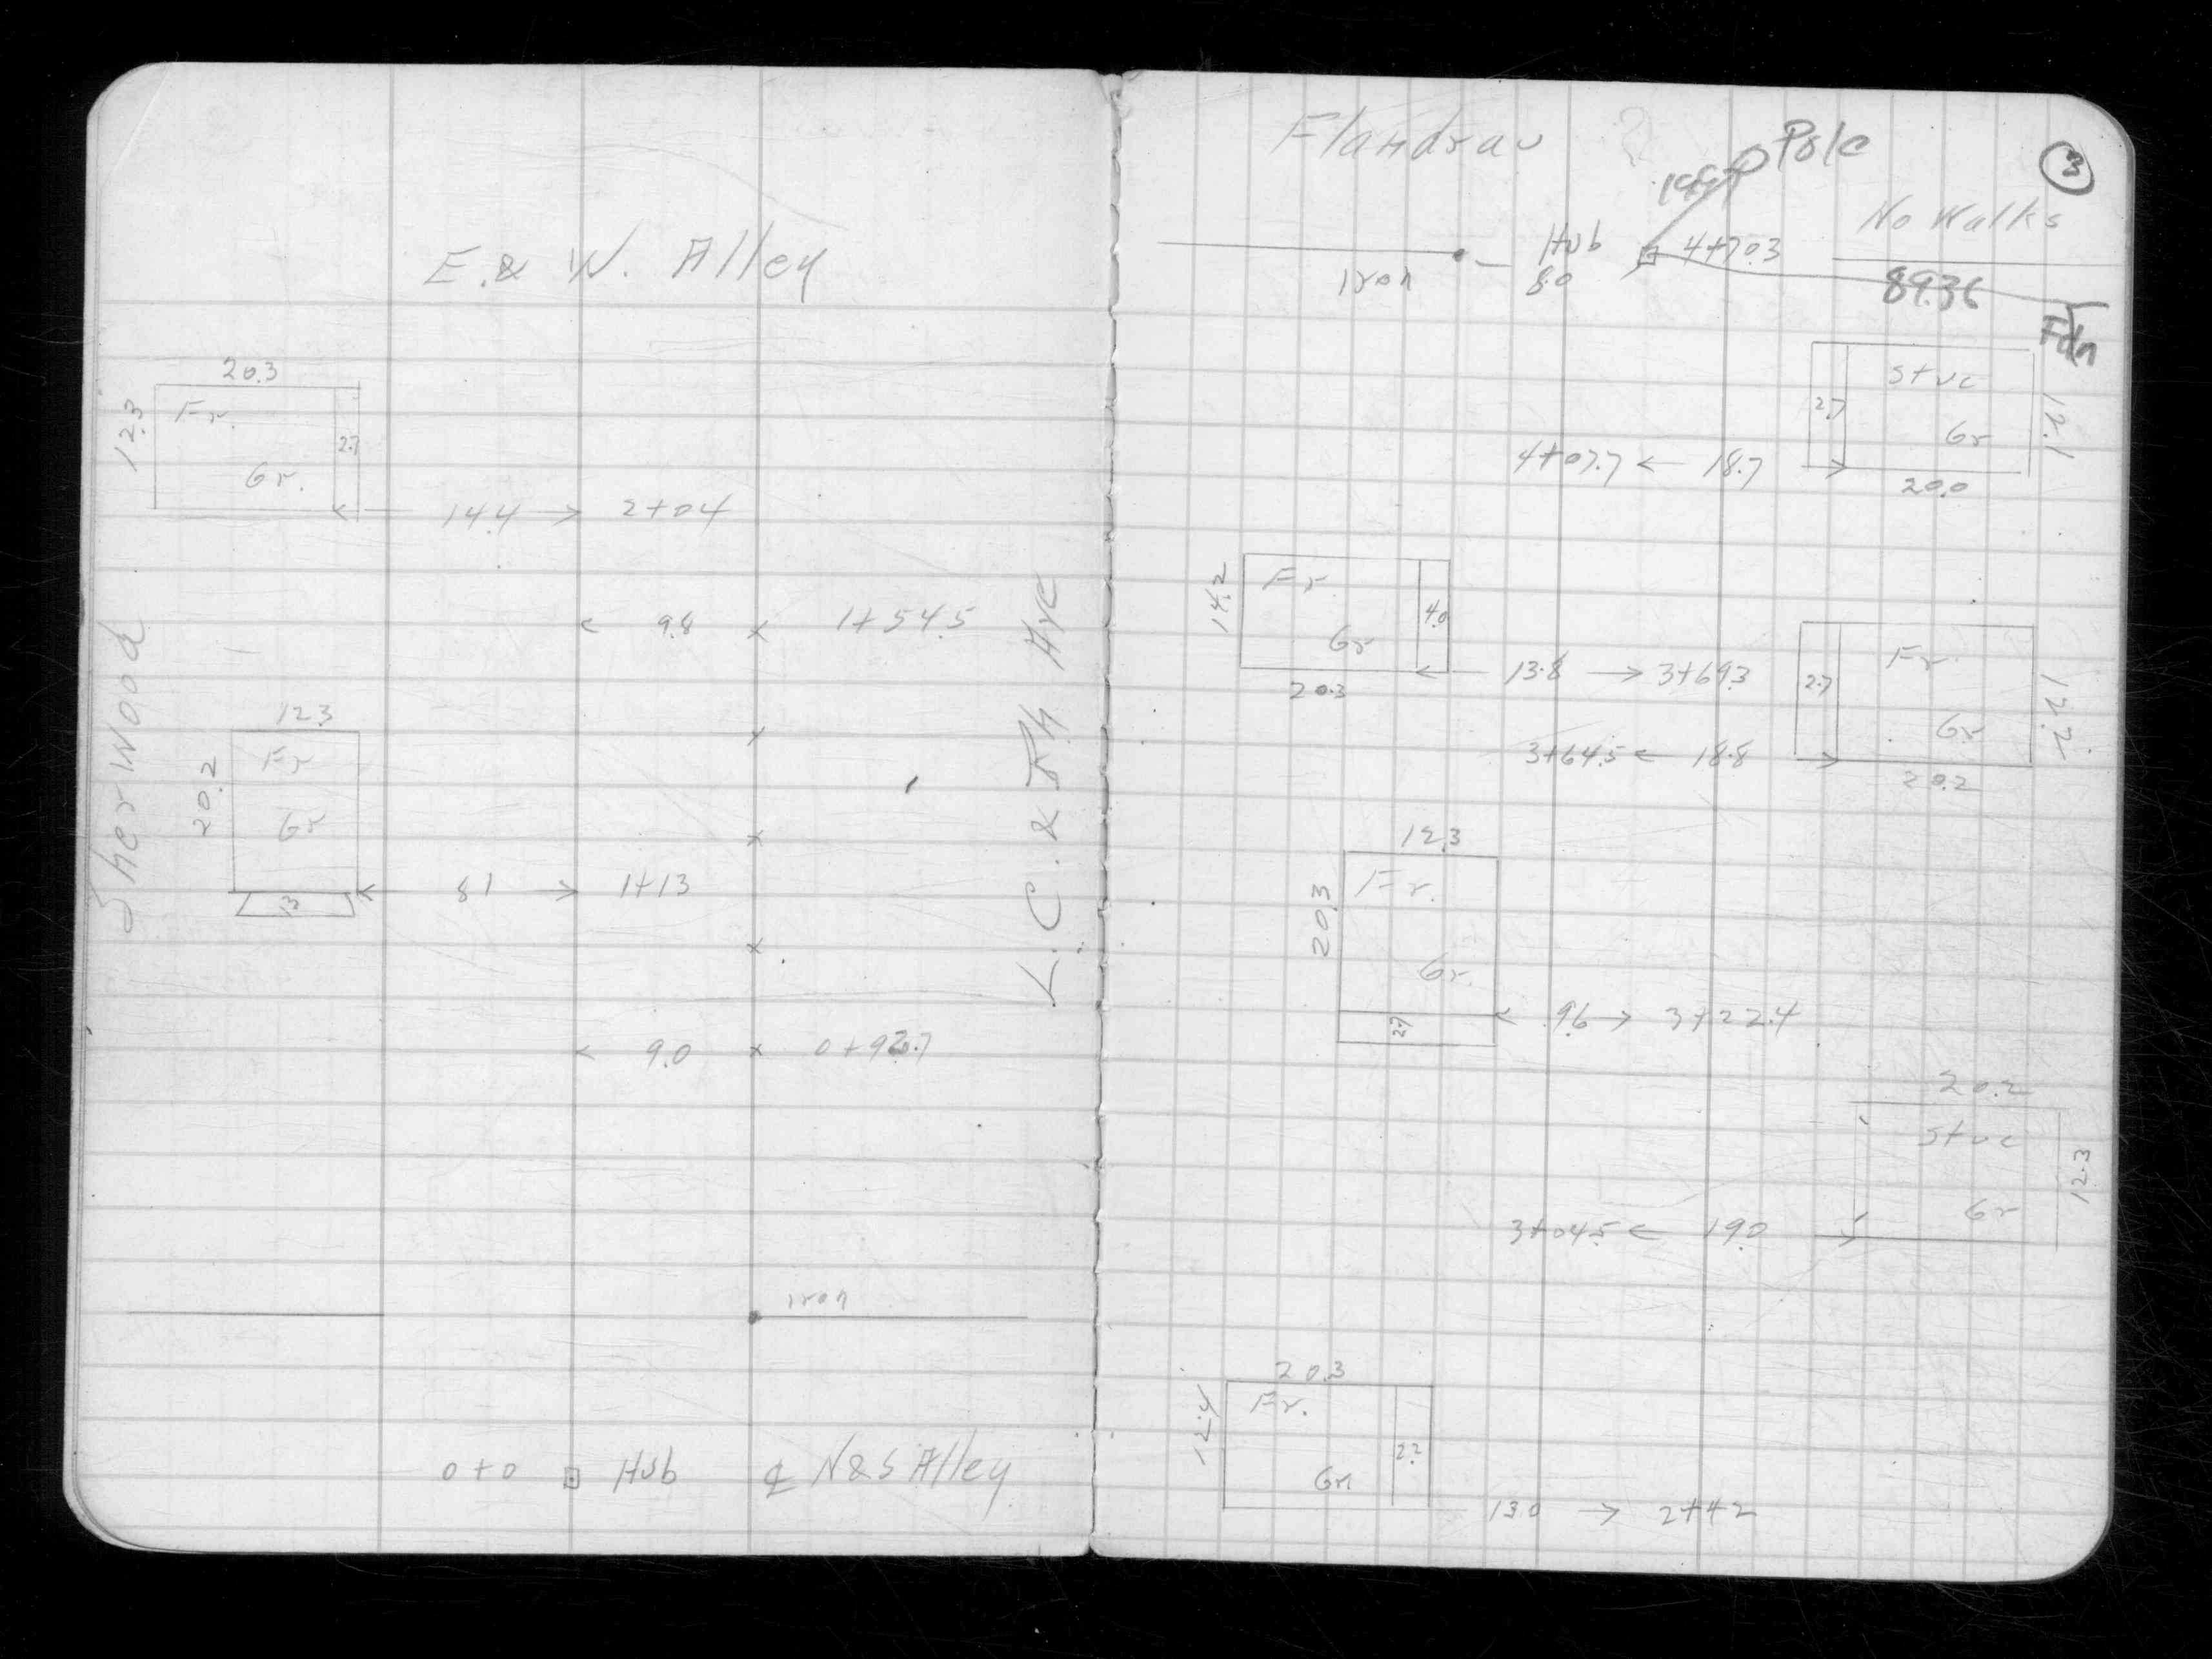 E. & W. Alley
20.3
12.3
Fr.
2.7
Gr.
14.4 → 2+04
Sherwood
← 9.8 x 1+54.5
L.C. & Th Ave
12.3
20.2
Fr
Gr
x
x
← 8.1 → 1+13
x
← 9.0 x
iron
0+0 Hub ℄ N&S Alley
Flandrau
Pole
3
No Walks
Hub
4+70.3
iron
8.0
89.36
Fdn
Stuc
2.7
Gr
12.1
4+07.7 ← 18.7
20.0
14.2
Fr.
4.0
Gr
20.3
← 13.8 → 3+69.3
Fr.
2.7
Gr
3+64.5 ← 18.8
20.2
12.3
20.3
Fr.
Gr.
2.7
← 9.6 → 3+22.4
20.2
Stuc
12.3
Gr
3+04.5 ← 19.0
20.3
12.4
Fr.
Gr
13.0 → 2+42